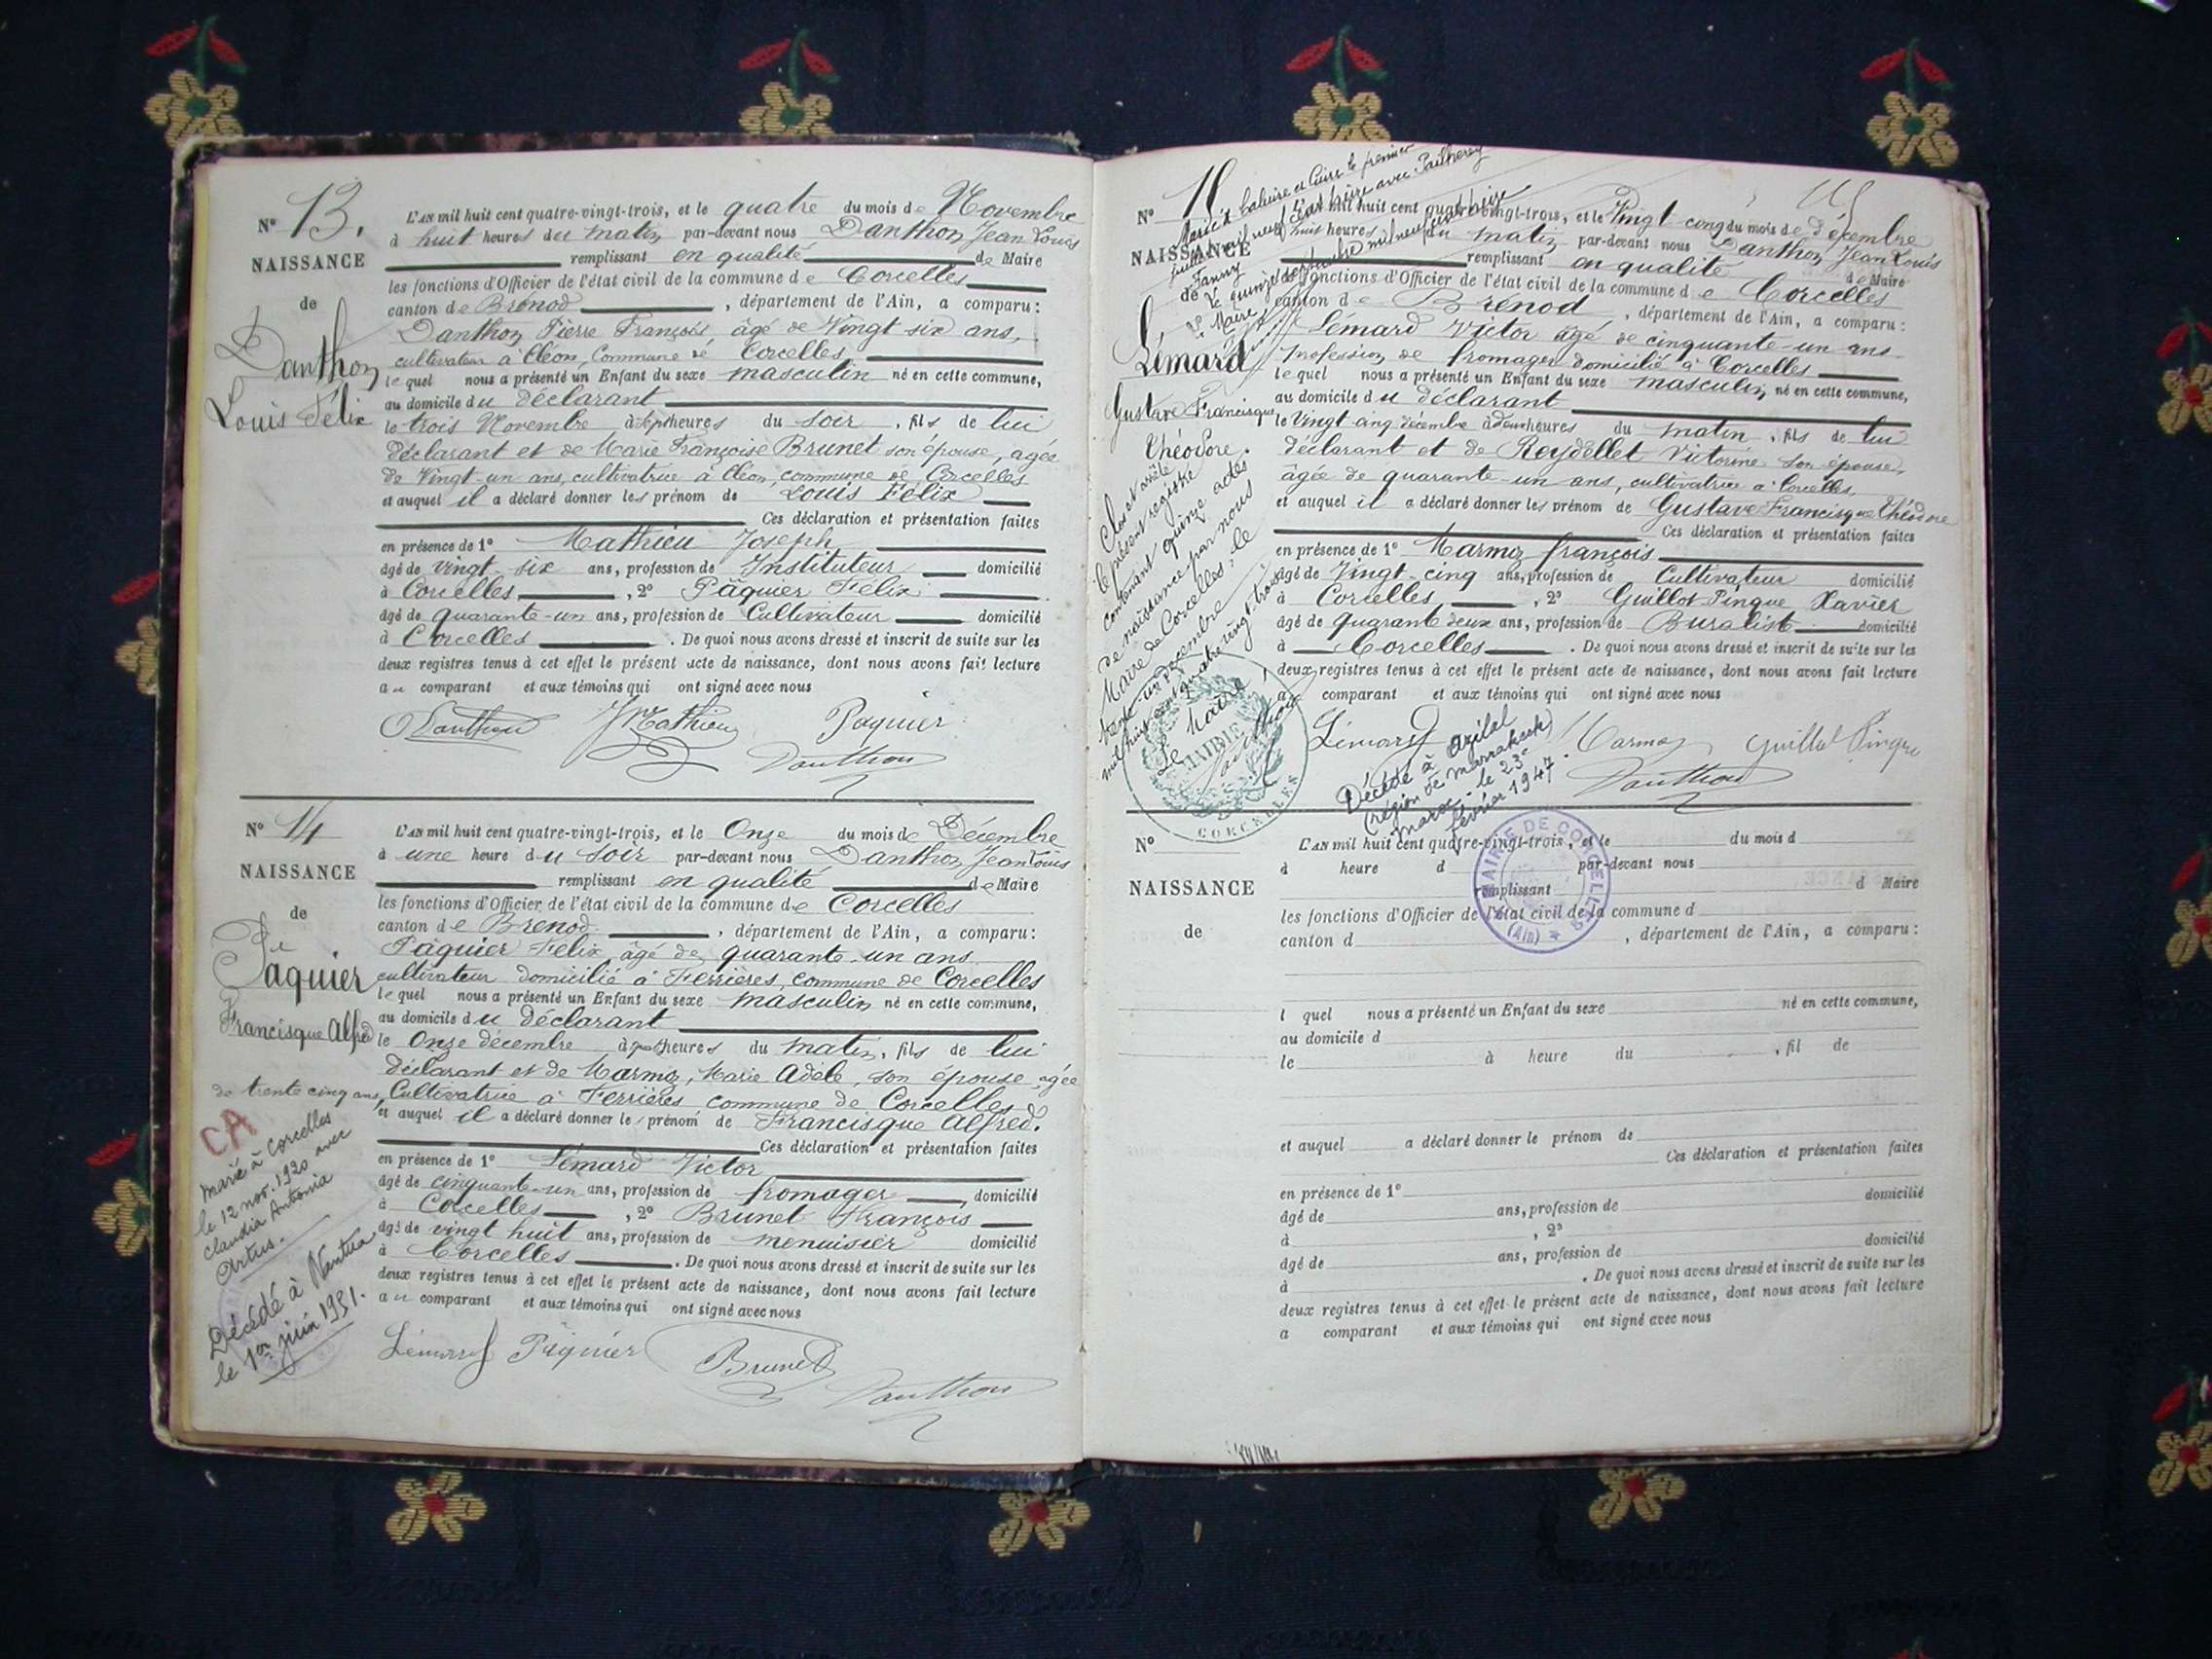 N° 13.
NAISSANCE
de
Danthon
Louis Félix
L'AN mil huit cent quatre-vingt-trois, et le quatre du mois de Novembre
à huit heures du matin par-devant nous Danthon Jean Louis
remplissant en qualité de Maire
les fonctions d'Officier de l'état civil de la commune de Corcelles
canton de Brénod , département de l'Ain, a comparu:
Danthon Pierre François âgé de Vingt six ans,
cultivateur à Cléon, Commune de Corcelles
le quel nous a présenté un Enfant du sexe masculin né en cette commune,
au domicile du déclarant
le trois Novembre à sept heures du soir , fils de lui
déclarant et de Marie Françoise Brunet son épouse, agée
de Vingt-un ans, cultivatrice à Cléon, commune de Corcelles
et auquel il a déclaré donner les prénom de Louis Félix
Ces déclaration et présentation faites
en présence de 1° Mathieu Joseph
âgé de vingt-six ans, profession de Instituteur domicilié
à Corcelles , 2° Pâquier Félix
âgé de quarante-un ans, profession de Cultivateur domicilié
à Corcelles . De quoi nous avons dressé et inscrit de suite sur les
deux registres tenus à cet effet le présent acte de naissance, dont nous avons fait lecture
au comparant et aux témoins qui ont signé avec nous
Danthon JMathieu Paquier
Danthon
N° 14
NAISSANCE
de
Pâquier
Francisque Alfred
L'AN mil huit cent quatre-vingt-trois, et le Onze du mois de Décembre
à une heure du soir par-devant nous Danthon Jean Louis
remplissant en qualité de Maire
les fonctions d'Officier de l'état civil de la commune de Corcelles
canton de Brenod , département de l'Ain, a comparu:
Pâquier Félix âgé de quarante-un ans
cultivateur domicilié à Ferrières, commune de Corcelles
le quel nous a présenté un Enfant du sexe masculin né en cette commune,
au domicile du déclarant
le Onze décembre à heures du matin, fils de lui
déclarant et de Marmoz, Marie Adèle, son épouse agée
de trente cinq ans, Cultivatrice à Ferrières commune de Corcelles
et auquel il a déclaré donner les prénom de Francisque Alfred.
Ces déclaration et présentation faites
en présence de 1° Lémard Victor
âgé de cinquante-un ans, profession de fromager , domicilié
à Corcelles , 2° Brunet François
âgé de vingt huit ans, profession de menuisier domicilié
à Corcelles . De quoi nous avons dressé et inscrit de suite sur les
deux registres tenus à cet effet le présent acte de naissance, dont nous avons fait lecture
au comparant et aux témoins qui ont signé avec nous
Lémard Pâquier Brunet
Danthon
CA
marié à Corcelles
le 12 nov. 1920 avec
Claudia Antonia
Artus.
Décédé à Nantua
le 1er juin 1951.
N°
NAISSANCE
de
Lémard
Gustave Francisque
Théodore.
Marié à Caluire et Cuire le premier
Fanny
Le quinze septembre mil neuf cent treize
Le Maire
L'AN mil huit cent quatre-vingt-trois, et le Vingt-cinq du mois de décembre
à huit heures du matin par-devant nous Danthon Jean Louis
remplissant en qualité de Maire
les fonctions d'Officier de l'état civil de la commune de Corcelles
canton de Brenod , département de l'Ain, a comparu:
Lémard Victor âgé de cinquante-un ans
profession de fromager domicilié à Corcelles
le quel nous a présenté un Enfant du sexe masculin, né en cette commune,
au domicile du déclarant
le Vingt cinq décembre à deux heures du matin , fils de lui
déclarant et de Reydellet Victorine son épouse,
âgée de quarante-un ans, cultivatrice à Corcelles,
et auquel il a déclaré donner les prénom de Gustave Francisque Théodore
Ces déclaration et présentation faites
en présence de 1° Marmoz françois
âgé de Vingt-cinq ans, profession de Cultivateur domicilié
à Corcelles , 2° Guillot-Pingue Xavier
âgé de quarante deux ans, profession de Buraliste domicilié
à Corcelles . De quoi nous avons dressé et inscrit de suite sur les
deux registres tenus à cet effet le présent acte de naissance, dont nous avons fait lecture
au comparant et aux témoins qui ont signé avec nous
Lémard Marmoz Guillot Pingue
Danthon
Clos et arrêté
le présent registre
contenant quinze actes
de naissance par nous
Maire de Corcelles, le
trente-un Décembre
mil huit cent quatre vingt trois
Le Maire
Danthon
MAIRIE
CORCELLES
Décédé à Azilal
(région de Marrakech)
Maroc - le 23
février 1947.
MAIRIE DE CORCELLES
(Ain)
N°
NAISSANCE
de
L'AN mil huit cent quatre-vingt-trois, et le du mois d
à heure d par-devant nous
remplissant d Maire
les fonctions d'Officier de l'état civil de la commune d
canton d , département de l'Ain, a comparu:
l quel nous a présenté un Enfant du sexe né en cette commune,
au domicile d
le à heure du , fil de
et auquel a déclaré donner le prénom de
Ces déclaration et présentation faites
en présence de 1° domicilié
âgé de ans, profession de
à , 2° domicilié
âgé de ans, profession de
à . De quoi nous avons dressé et inscrit de suite sur les
deux registres tenus à cet effet le présent acte de naissance, dont nous avons fait lecture
a comparant et aux témoins qui ont signé avec nous